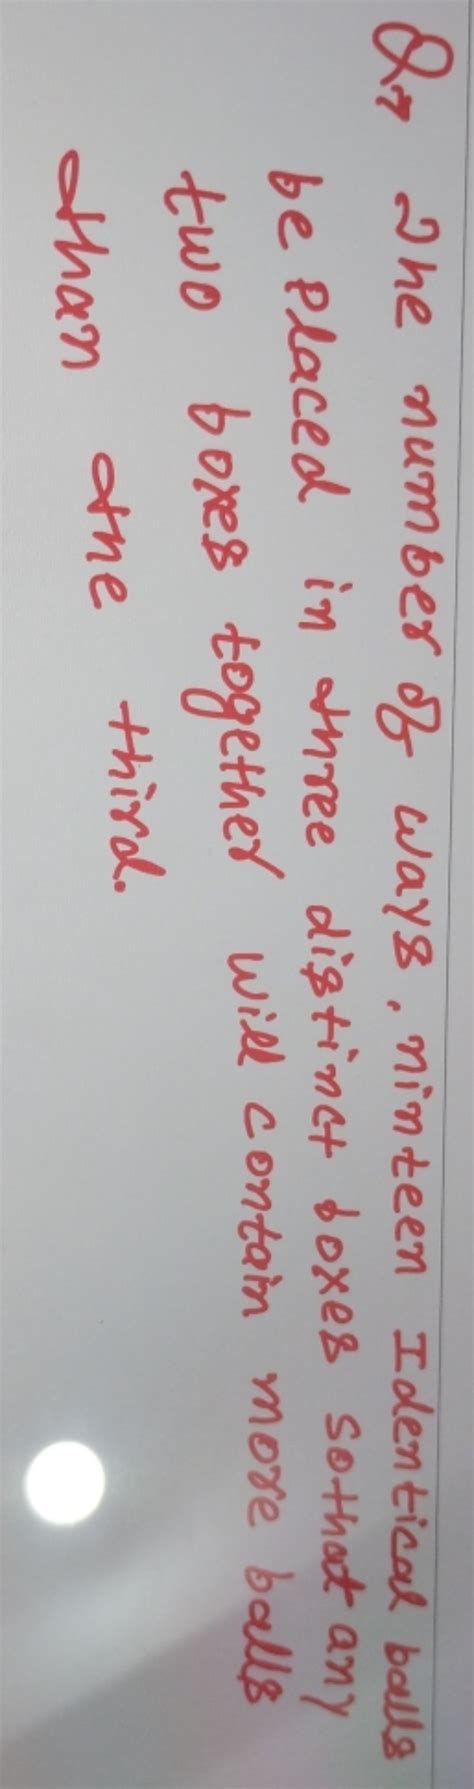 Q→ The number of ways, ninteen Identical balls
be placed in three distinct boxes sothat any
two boxes together will contain more balls
than the third.